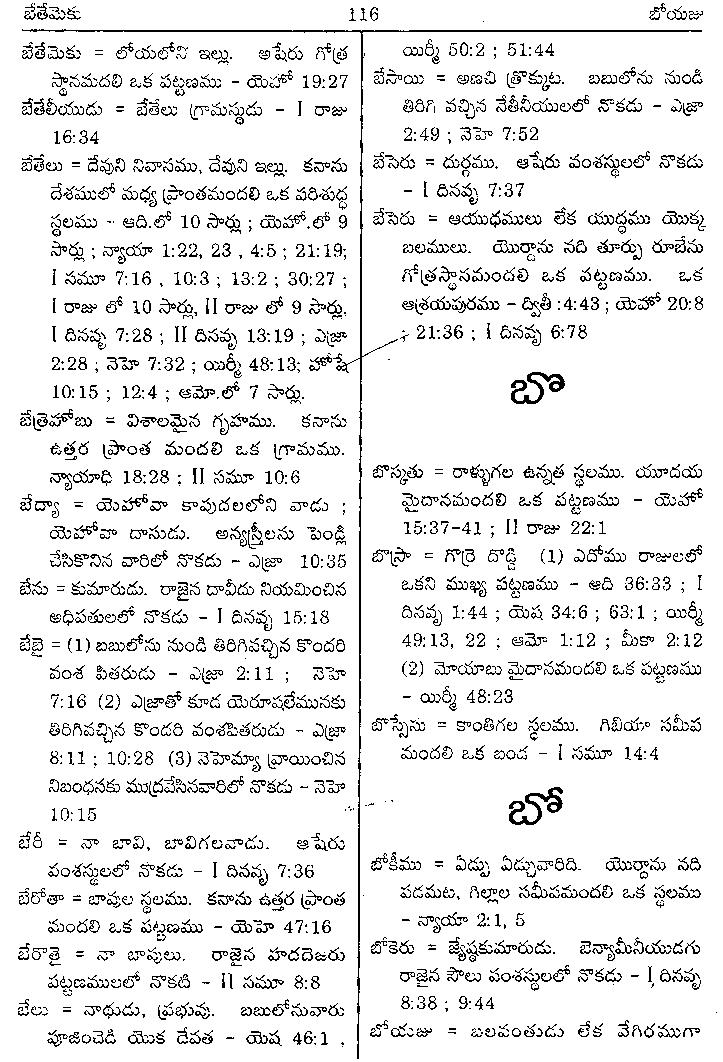 బేతేమెకు 116 బోయజు
బేతేమెకు = లోయలోని ఇల్లు. అషేరు గోత్ర
స్థానమదలి ఒక పట్టణము - యెహో 19:27
బేతేలీయుడు = బేతేలు గ్రామస్థుడు - I రాజు
16:34
బేతేలు = దేవుని నివాసము, దేవుని ఇల్లు. కనాను
దేశములో మధ్య ప్రాంతమందలి ఒక పరిశుద్ధ
స్థలము - ఆది.లో 10 సార్లు ; యెహో.లో 9
సార్లు ; న్యాయా 1:22, 23 , 4:5 ; 21:19;
I సమూ 7:16 , 10:3 ; 13:2 ; 30:27 ;
I రాజు లో 10 సార్లు, II రాజు లో 9 సార్లు,
I దినవృ 7:28 ; II దినవృ 13:19 ; ఎజ్రా
2:28 ; నెహె 7:32 ; యిర్మీ 48:13; హోషే
10:15 ; 12:4 ; ఆమో.లో 7 సార్లు.
బేత్రెహోబు = విశాలమైన గృహము. కనాను
ఉత్తర ప్రాంత మందలి ఒక గ్రామము.
న్యాయాధి 18:28 ; II సమూ 10:6
బేద్యా = యెహోవా కాపుదలలోని వాడు ;
యెహోవా దాసుడు. అన్యస్త్రీలను పెండ్లి
చేసికొనిన వారిలో నొకడు - ఎజ్రా 10:35
బేను = కుమారుడు. రాజైన దావీదు నియమించిన
అధిపతులలో నొకడు - I దినవృ 15:18
బేబై = (1) బబులోను నుండి తిరిగివచ్చిన కొందరి
వంశ పితరుడు - ఎజ్రా 2:11 ; నెహె
7:16 (2) ఎజ్రాతో కూడ యెరూషలేమునకు
తిరిగివచ్చిన కొందరి వంశపితరుడు - ఎజ్రా
8:11 ; 10:28 (3) నెహెమ్యా వ్రాయించిన
నిబంధనకు ముద్రవేసినవారిలో నొకడు - నెహె
10:15
బేరీ = నా బావి, బావిగలవాడు. ఆషేరు
వంశస్థులలో నొకడు - I దినవృ 7:36
బేరోతా = బావుల స్థలము. కనాను ఉత్తర ప్రాంత
మందలి ఒక పట్టణము - యెహె 47:16
బేరొతై = నా బావులు. రాజైన హదదెజరు
పట్టణములలో నొకటి - II సమూ 8:8
బేలు = నాథుడు, ప్రభువు. బబులోనువారు
పూజించెడి యొక దేవత - యెష 46:1 ,
యిర్మీ 50:2 ; 51:44
బేసాయి = అణచి త్రొక్కుట. బబులోను నుండి
తిరిగి వచ్చిన నేతీనీయులలో నొకడు - ఎజ్రా
2:49 ; నెహె 7:52
బేసెరు = దుర్గము. ఆషేరు వంశస్థులలో నొకడు
- I దినవృ 7:37
బేసెరు = ఆయుధములు లేక యుద్ధము యొక్క
బలములు. యొర్దాను నది తూర్పు రూబేను
గోత్రస్థానమందలి ఒక పట్టణము. ఒక
ఆశ్రయపురము - ద్వితీ :4:43 ; యెహో 20:8
; 21:36 ; I దినవృ 6:78
బొ
బొస్కతు = రాళ్ళుగల ఉన్నత స్థలము. యూదయ
మైదానమందలి ఒక పట్టణము - యెహో
15:37-41 ; II రాజు 22:1
బొస్రా = గొర్రె దొడ్డి (1) ఎదోము రాజులలో
ఒకని ముఖ్య పట్టణము - ఆది 36:33 ; I
దినవృ 1:44 ; యెష 34:6 ; 63:1 ; యిర్మీ
49:13, 22 ; ఆమో 1:12 ; మీకా 2:12
(2) మోయాబు మైదానమందలి ఒక పట్టణము
- యిర్మీ 48:23
బొస్సేసు = కాంతిగల స్థలము. గిబియా సమీప
మందలి ఒక బండ - I సమూ 14:4
బో
బోకీము = ఏడ్పు ఏడ్చువారిది. యొర్దాను నది
పడమట, గిల్గాల సమీపమందలి ఒక స్థలము
- న్యాయా 2:1, 5
బోకెరు = జ్యేష్ఠకుమారుడు. బెన్యామీనీయుడగు
రాజైన సౌలు వంశస్థులలో నొకడు - I దినవృ
8:38 ; 9:44
బోయజు = బలవంతుడు లేక వేగిరముగా